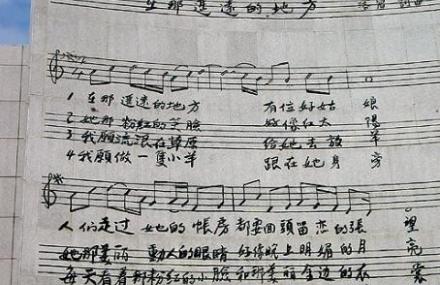 在那遥遠的地方
1 在那遥遠的地方 有位好姑 娘
2 她那粉紅的笑臉 好像紅太 陽
3 我願流浪在草原 跟她去放 羊
4 我願做一隻小羊 跟在她身 旁
人们走过 她的帳房 都要回頭留恋的張 望
她那美丽 動人的眼睛 好像晚上明媚的月 亮
每天看着那粉紅的小臉和那美丽金边的衣 裳